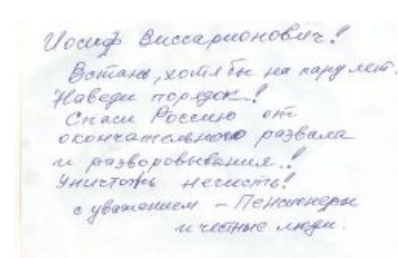 Иосиф Виссарионович!
Встань, хотя бы на пару лет.
Наведи порядок!
Спаси Россию от
окончательного развала
и разворовывания..!
Уничтожь нечисть!
с уважением – Пенсионеры
и честные люди.